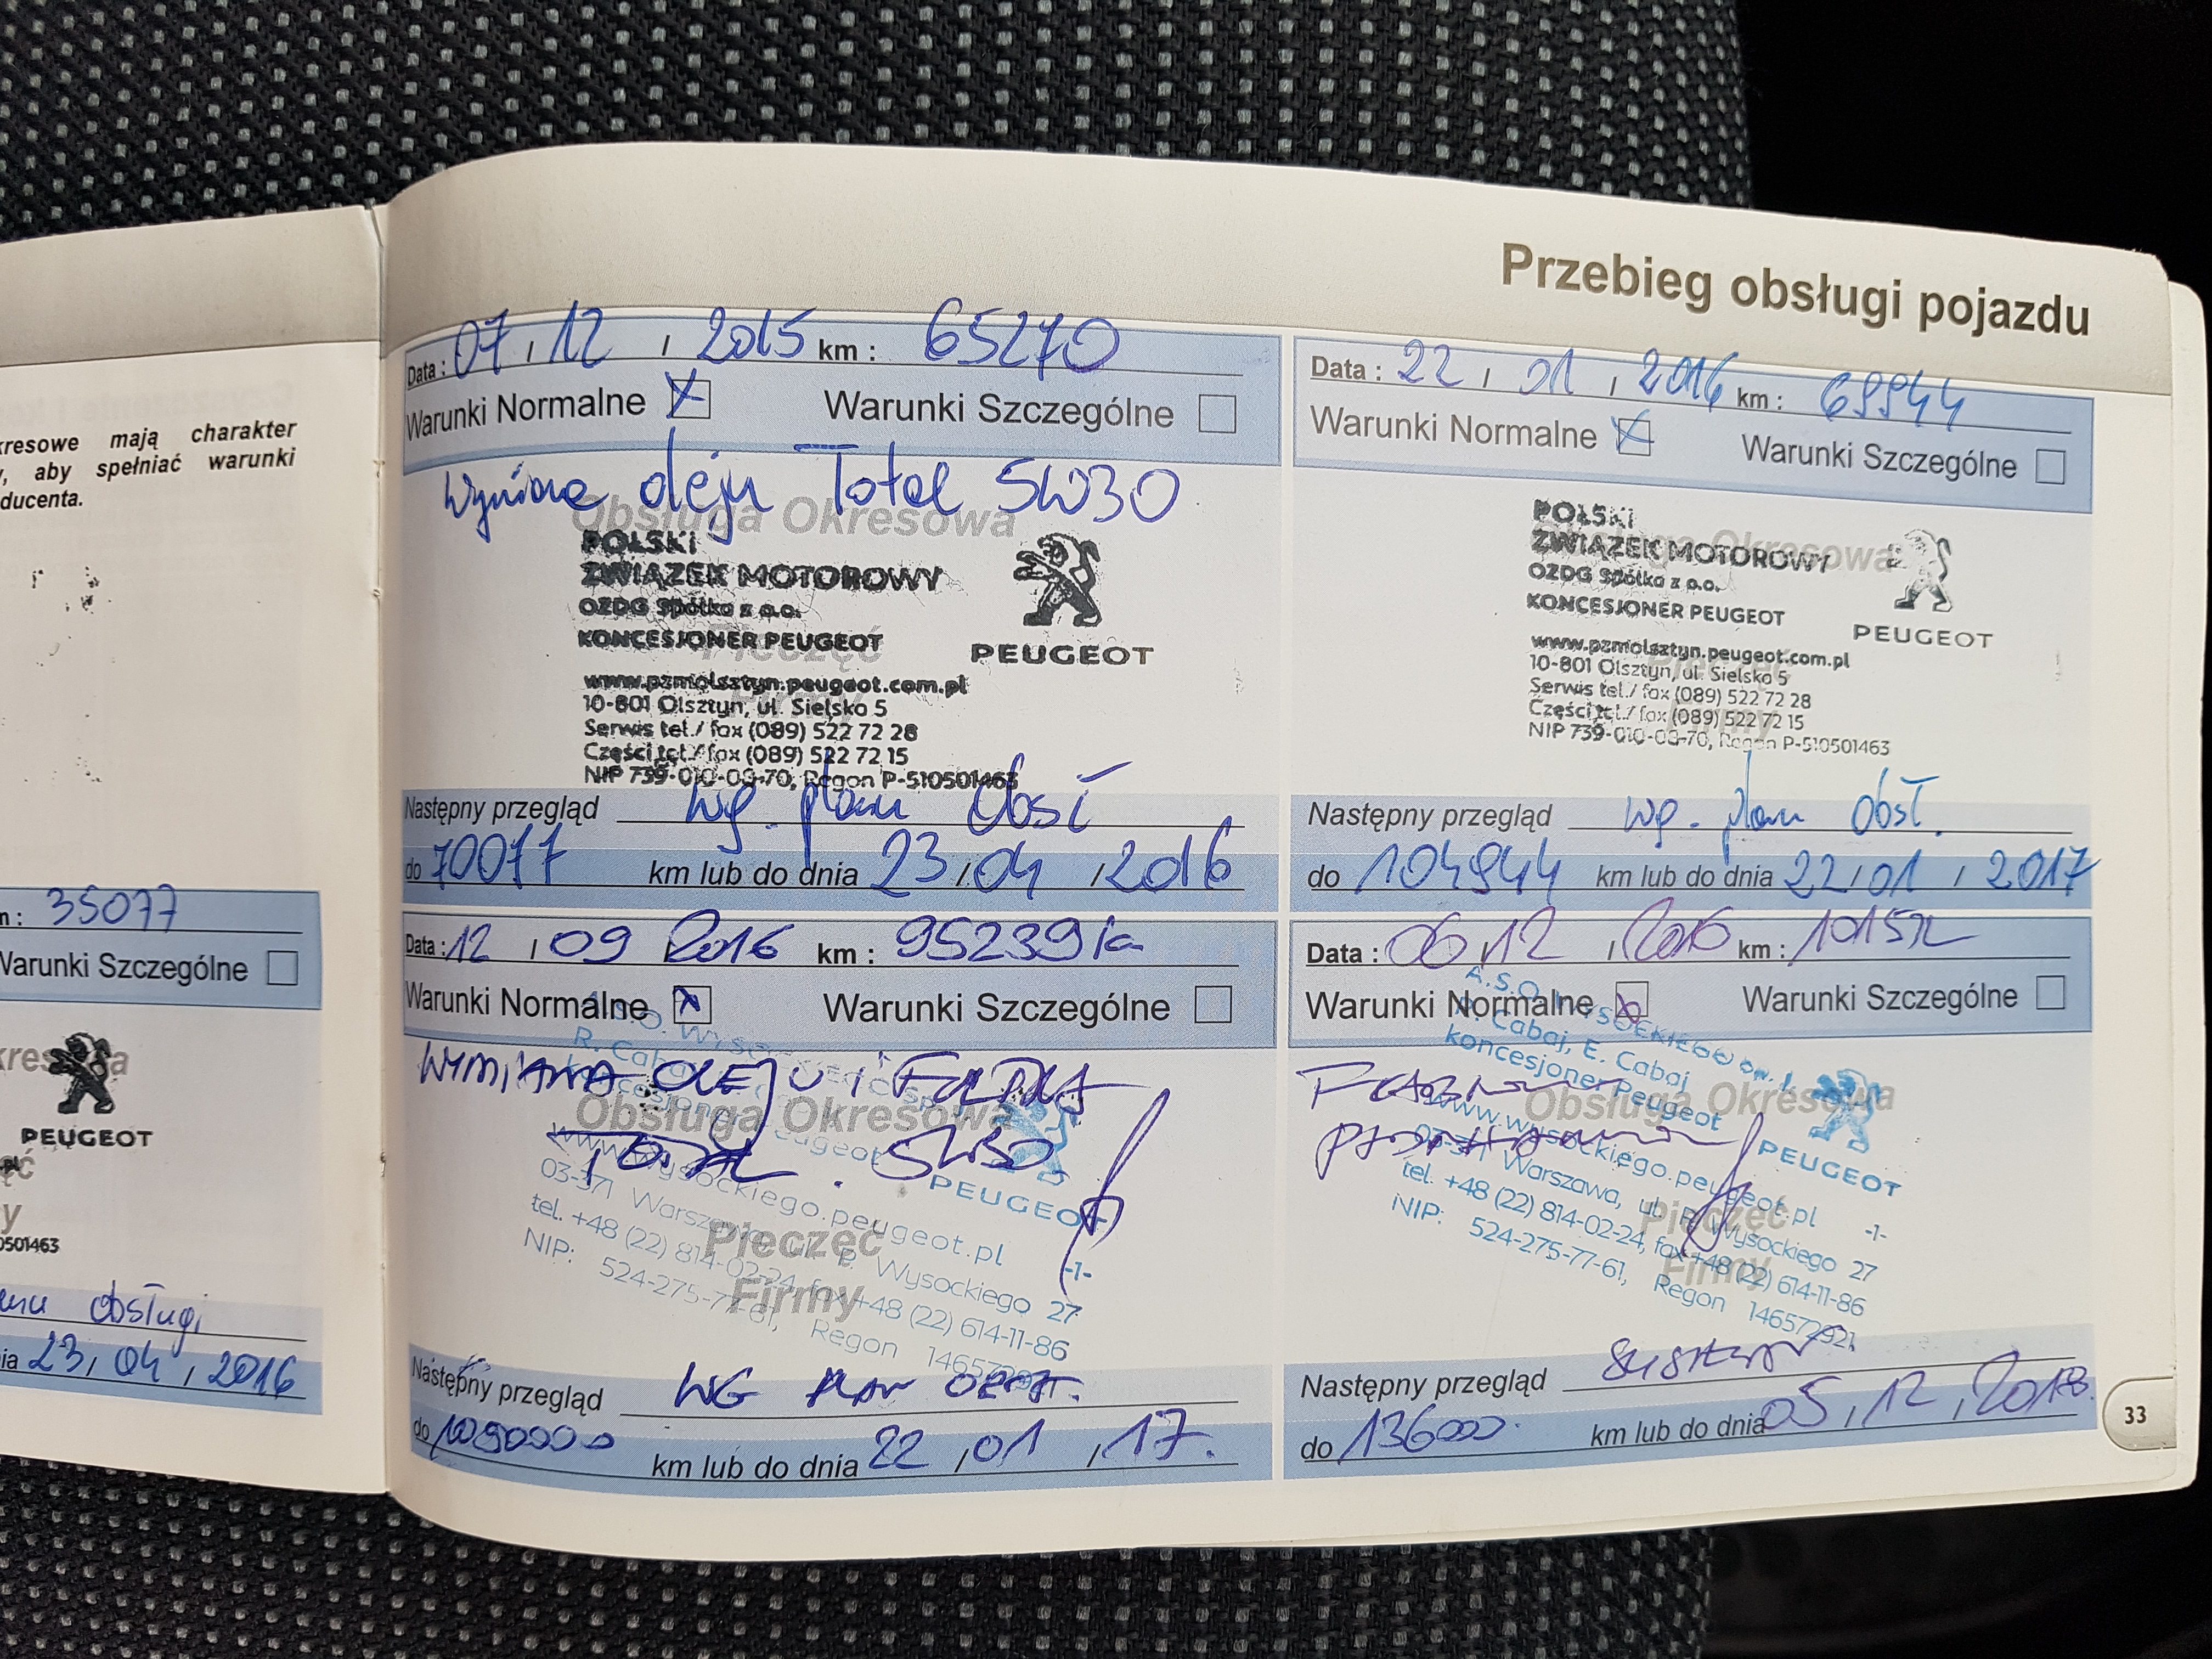 kresowe mają charakter
aby spełniać warunki
ducenta.
35077
Warunki Szczególne
PEUGEOT
501463
obsługi
23/04/2016
Przebieg obsługi pojazdu
Data : 07/12/2015 km : 65270
Warunki Normalne X Warunki Szczególne
oleju Total 5W30
Obsługa Okresowa
POLSKI
ZWIĄZEK MOTOROWY
OZDG Spółka z o.o.
KONCESJONER PEUGEOT
PEUGEOT
Pieczęć
Firmy
www.pzmolsztyn.peugeot.com.pl
10-801 Olsztyn, ul. Sielska 5
Serwis tel./ fax (089) 522 72 28
Części tel./ fax (089) 522 72 15
NIP 739-010-08-70, Regon P-510501463
Następny przegląd wg. planu obsł
do 70077 km lub do dnia 23/04/2016
Data : 22/01/2016 km : 69944
Warunki Normalne X Warunki Szczególne
Obsługa Okresowa
POLSKI
ZWIĄZEK MOTOROWY
OZDG Spółka z o.o.
KONCESJONER PEUGEOT
PEUGEOT
Pieczęć
Firmy
www.pzmolsztyn.peugeot.com.pl
10-801 Olsztyn, ul. Sielska 5
Serwis tel./ fax (089) 522 72 28
Części tel./ fax (089) 522 72 15
NIP 739-010-08-70, Regon P-510501463
Następny przegląd wg. planu obsł.
do 104944 km lub do dnia 22/01/2017
Data : 12/09/2016 km : 95239
Warunki Normalne X Warunki Szczególne
WYMIANA OLEJU i FILTRA
TOTAL 5W30
Obsługa Okresowa
PEUGEOT
Pieczęć
Firmy
03-371 Warszawa, ul. P. Wysockiego 27
tel. +48 (22) 814-02-24, fax +48 (22) 614-11-86
NIP: 524-275-77-61, Regon
-1-
Następny przegląd WG PLAN OBSŁ.
do km lub do dnia 22/01/17.
Data : 06/12/2016 km :
Warunki Normalne Warunki Szczególne
R. Cabaj, E. Cabaj
koncesjoner Peugeot
Obsługa Okresowa
www.wysockiego.peugeot.pl
PEUGEOT
Pieczęć
Firmy
03-371 Warszawa, ul. P. Wysockiego 27
tel. +48 (22) 814-02-24, fax +48 (22) 614-11-86
NIP: 524-275-77-61, Regon 146572921
-1-
Następny przegląd
do 136000 km lub do dnia 05/12/2018
33